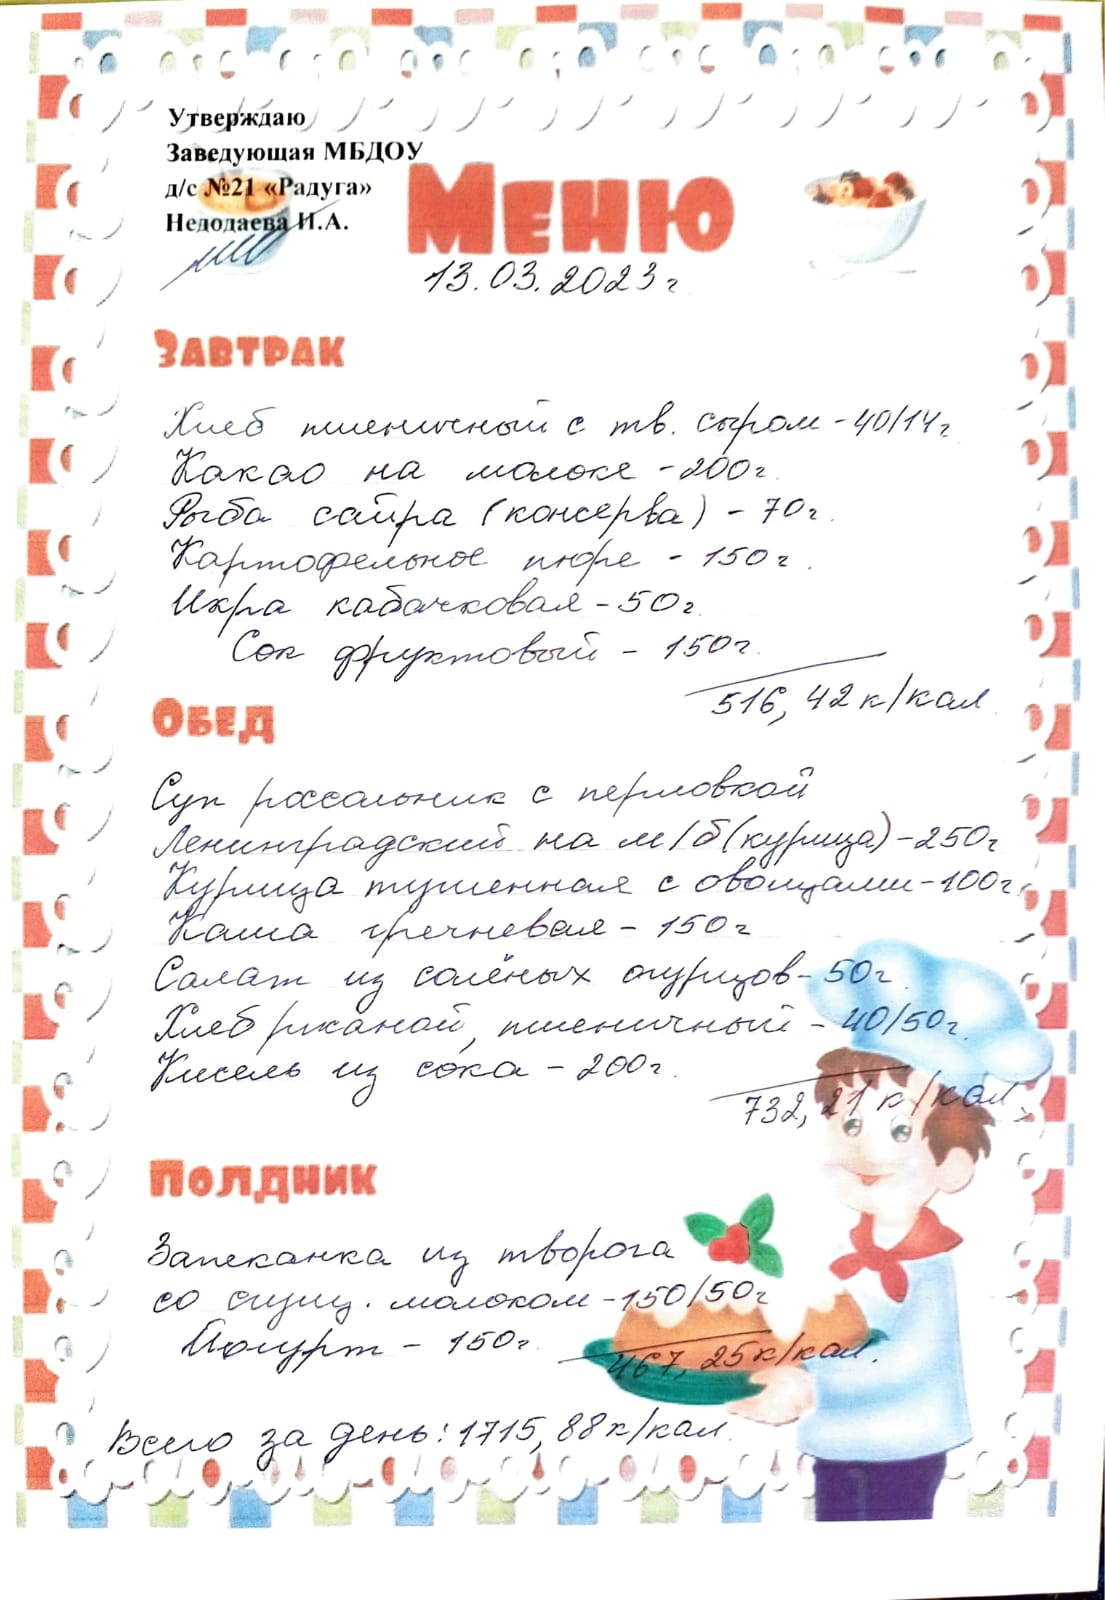 Утверждаю
Заведующая МБДОУ
д/с №21 «Радуга»
Недодаева И.А.
Меню
13.03.2023г
Завтрак
Хлеб пшеничный с тв. сыром - 40/14г
Какао на молоке - 200г.
Рыба сайра (консерва) - 70г.
Картофельное пюре - 150г.
Икра кабачковая - 50г.
Сок фруктовый - 150г.
516,42 к/кал
Обед
Суп рассольник с перловкой
Ленинградский на м/б (курица) - 250г
Курица тушенная с овощами - 100г.
Каша гречневая - 150г
Салат из солёных огурцов - 50г.
Хлеб ржаной, пшеничный - 40/50г.
Кисель из сока - 200г.
732,21 к/кал.
Полдник
Запеканка из творога
со сгущ. молоком - 150/50г
Йогурт - 150г.
467,25 к/кал.
Всего за день: 1715,88 к/кал.